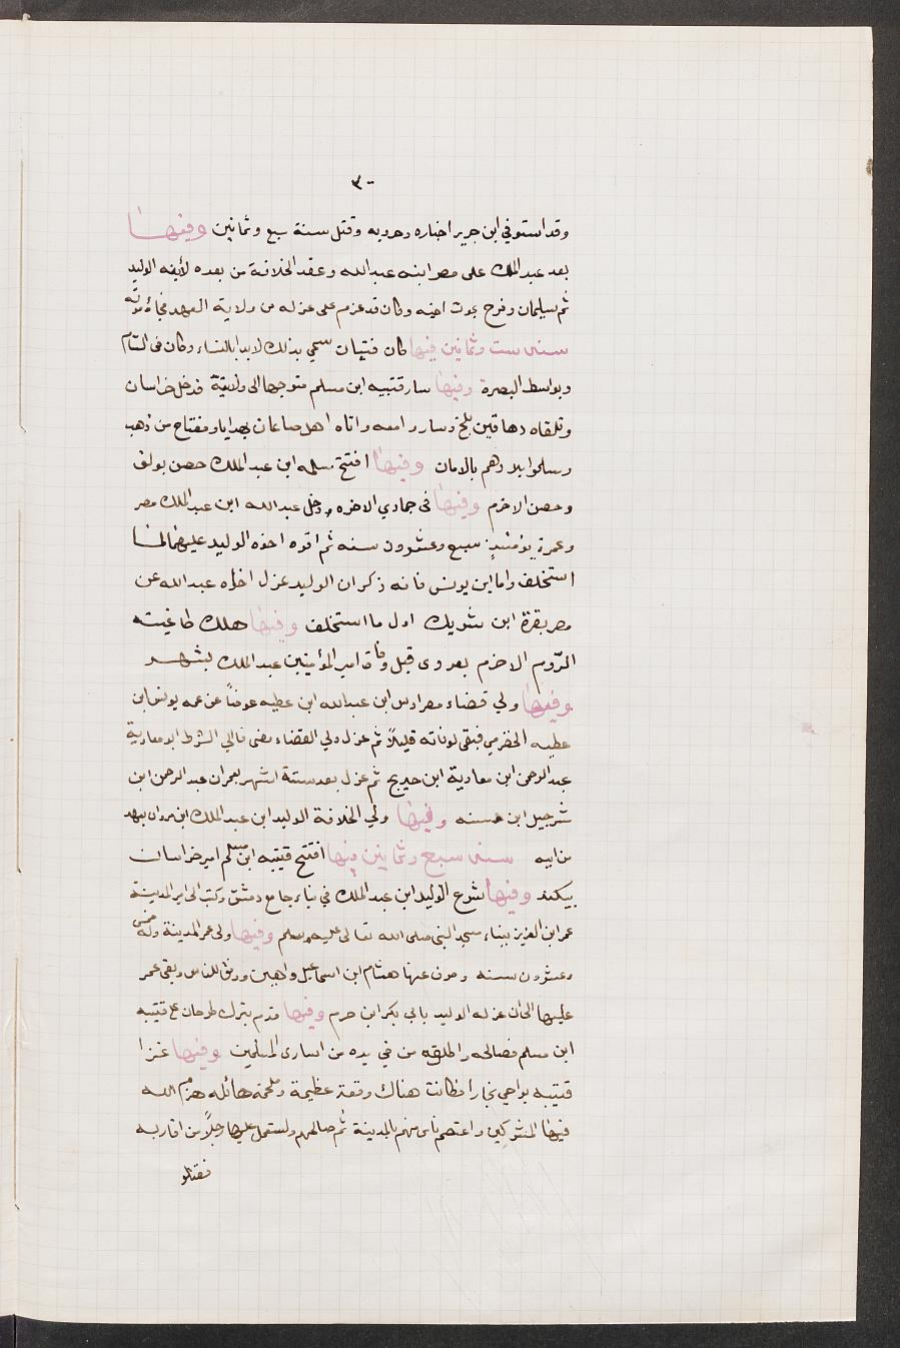 ٣٠
وقد استوفي ابن جرير اخباره وحروبه وقتل سنة سبع وثمانين وفيها
بعد عبد الملك على مصر ابنه عبد الله وعقد الخلافة من بعده لأبنه الوليد
ثم سليمان وفرح بموت اخيه وكان قد عزم على عزله من ولاية العهد فجاءه موته
سنة ست وثمانين فيها كان فتيات سمي بذلك لابدا بالنساء وكان فى الشام
وبواسط البصرة وفيها سار قتيبه ابن مسلم متوجها الى ولايته فدخل خراسان
وتلقاه دهاقين بلخ وساروا معه واتاه اهل صاغان بهدايا ومفتاح من ذهب
وسلموا بلادهم بالامان وفيها افتتح مسلمه ابن عبد الملك حصن بولق
وحصن الاخرم وفيها فى جمادي الاخره ودخل عبد الله ابن عبد الملك مصر
وعمره يومئذ سبع وعشرون سنه ثم اقره اخوه الوليد عليها لما
استخلف واما ابن يونس فانه ذكر ان الوليد عزل اخاه عبد الله عن
مصر بقرة ابن شريك اول ما استخلف وفيها هلك طاغيته
الرّوم الاخرم بعروى قبل وفاة امير المؤمينين عبد الملك بشهر
وفيها ولي قضاء مصر ابن عبد الله ابن عطيه عوضاً عن عمه يونس ابن
عطيه الحضرمي فبقى لوفاته قليلاً ثم عزل وولي القضاء ابو معاوية
عبد الرحمن ابن معاوية ابن حديج ثم عزل بعد ستة اشهر بعمران عبد الرحمن ابن
شرجيل ابن حسنه وفيها ولي الخلافة الوليد ابن عبد الملك ابن مروان بعهد
من ابيه سنة سبع وثمانين فيها افتتح قتيبه ابن مسلم امير خراسان
بيكند وفيها شرع الوليد ابن عبد الملك في بناء جامع دمشق وكتب الى امير المدينة
عمر ابن العزيز ببناء مسجد النبي صلى الله تعالى عليه وسلم وفيها ولى عمر المدينة وله خمس
وعشرون سنه وصرف عنها هشام ابن اسماعيل للناس وبقى عمر
عليها الى ان عزله الوليد بابي بكر ابن حزم وفيها قدم نيزك طرحان على قتيبه
ابن مسلم فصالحه واطلق من في يده من اسارى المسلمين وفيها غزا
قتيبه نواحي بخارا فكانت هناك وقعة عظيمة وملحمة هائله هزم الله
فيها المشركين واعتصم ناس منهم بالمدينة ثم صالحهم واستعمل عليها رجلاً من اقاربه
فقتلو